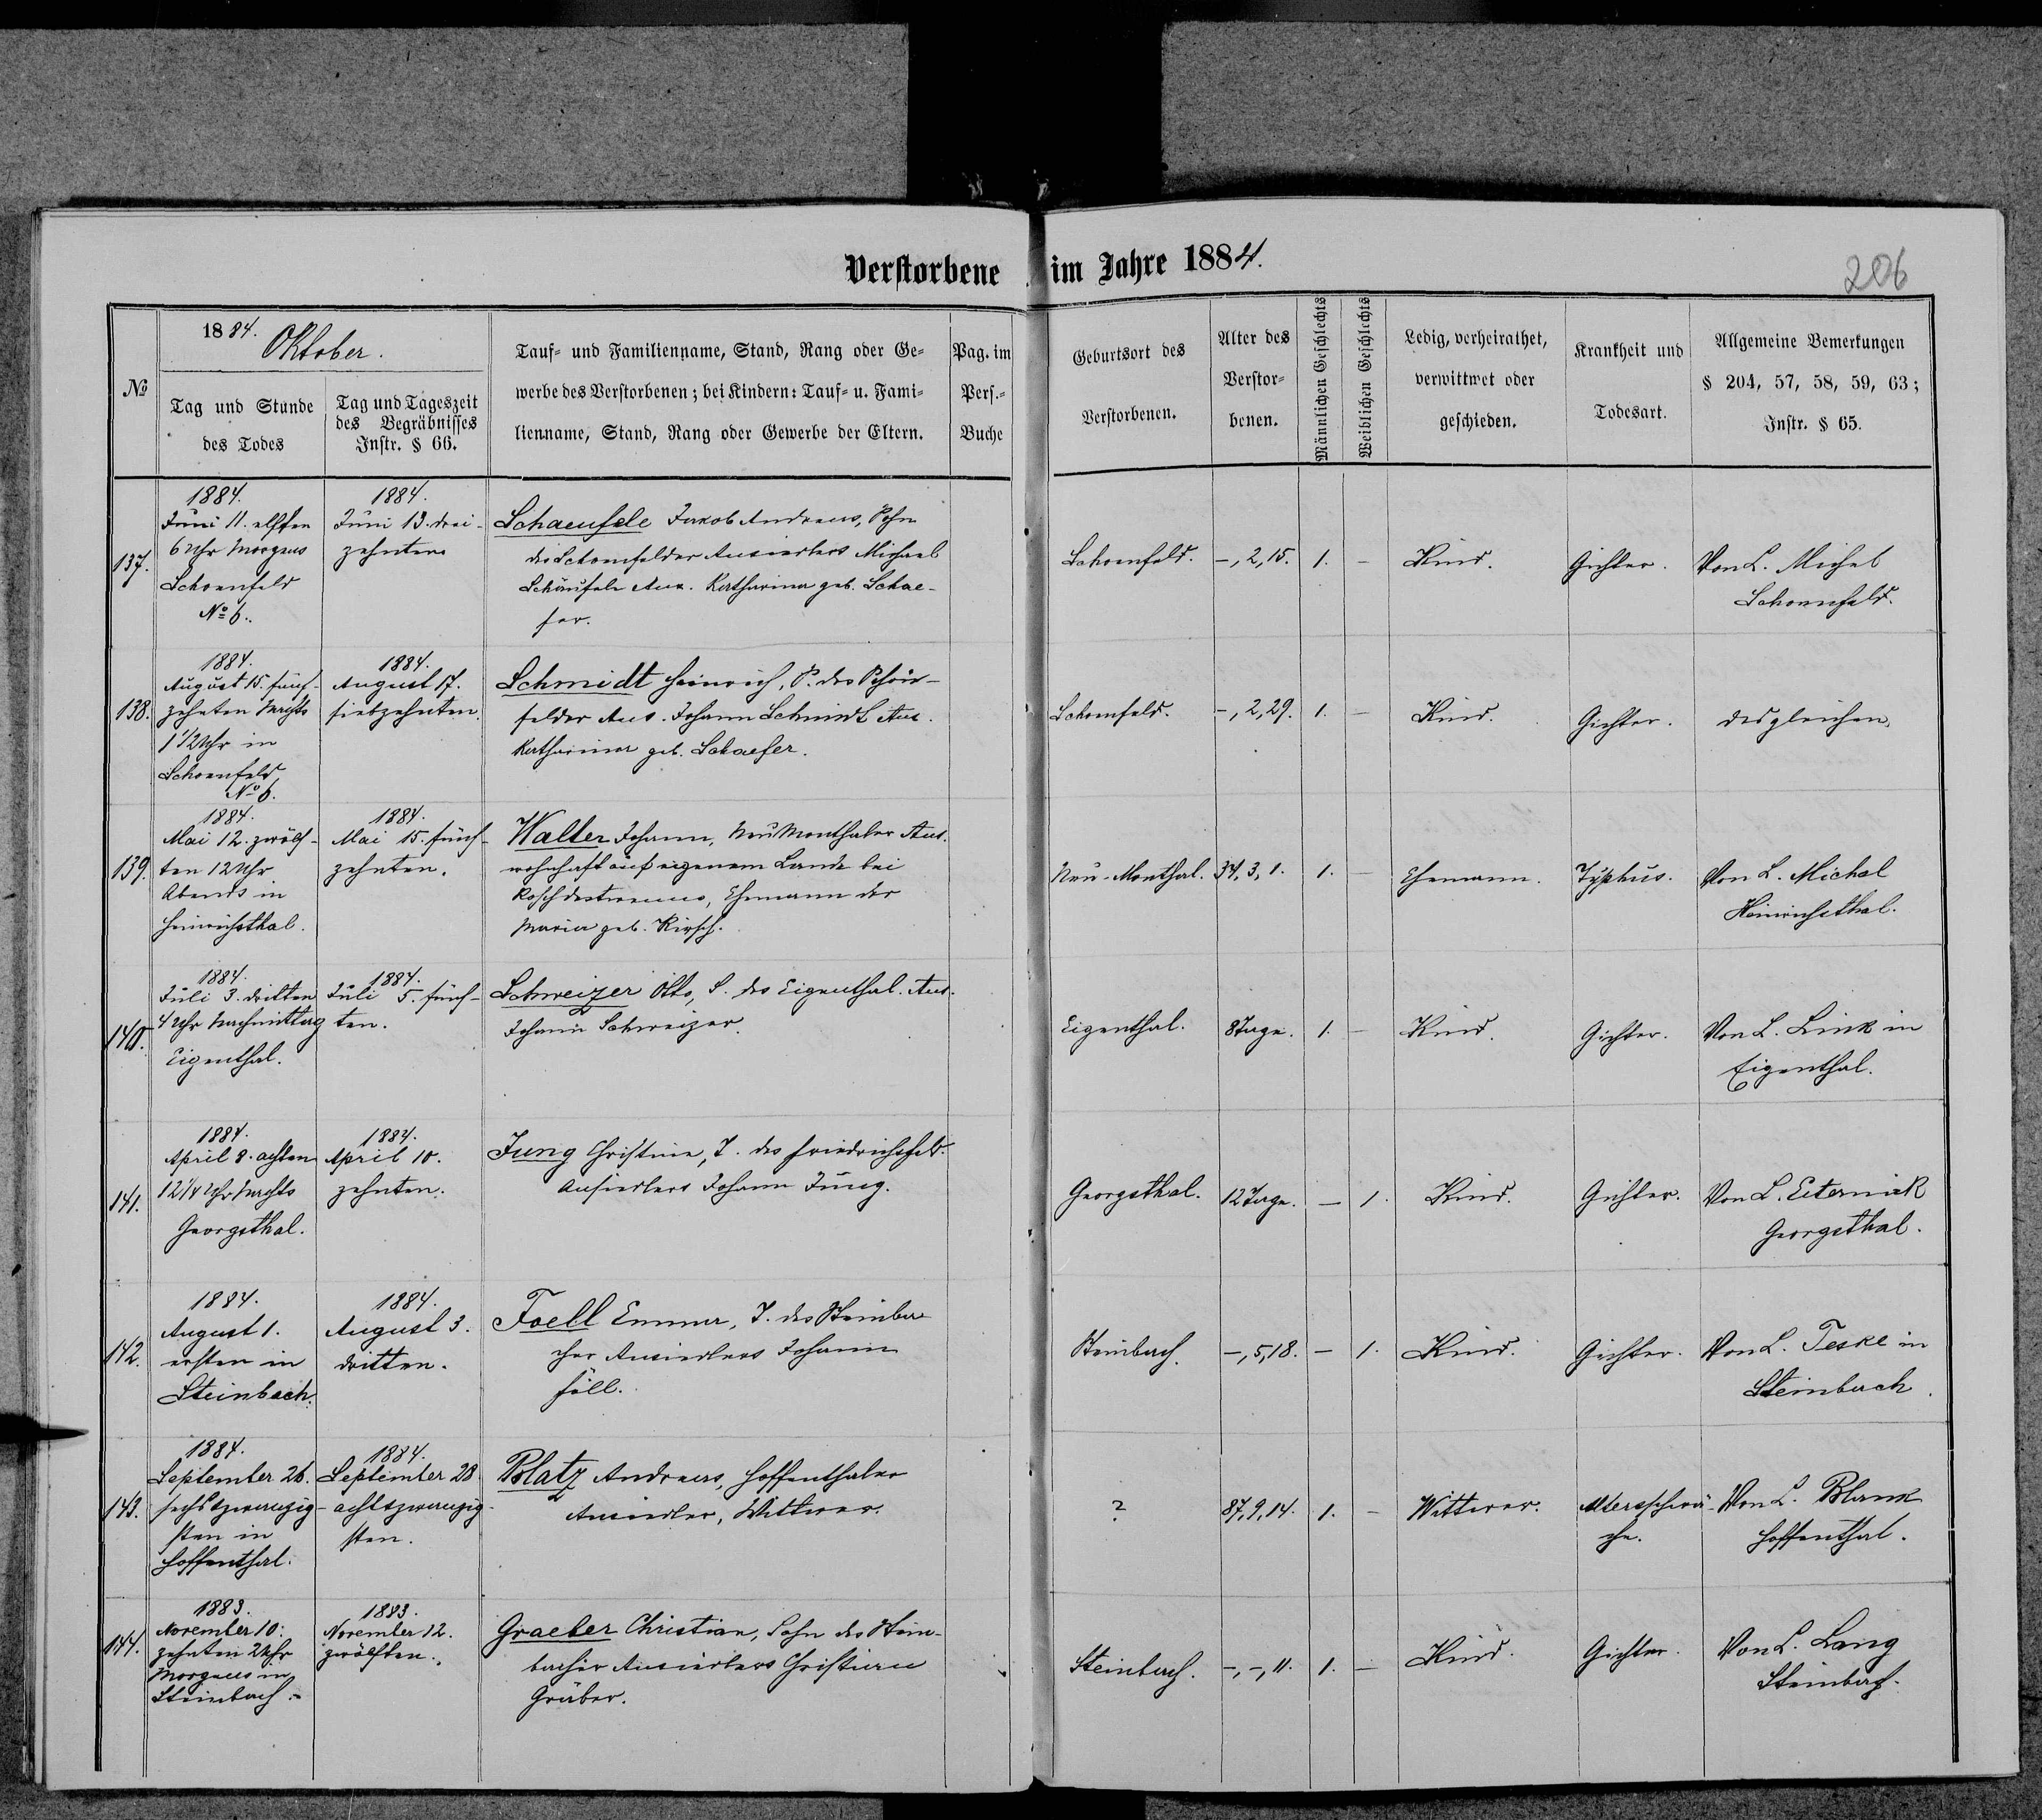 Verstorbene im Jahre 1884.
206
№
1884. Oktober.
Tag und Stunde
des Todes
Tag und Tageszeit
des Begräbnisses
Instr. § 66.
Tauf- und Familienname, Stand, Rang oder Ge-
werbe des Verstorbenen; bei Kindern: Tauf- u. Fami-
lienname, Stand, Rang oder Gewerbe der Eltern.
Pag. im
Pers.-
Buche
Geburtsort des
Verstorbenen.
Alter des
Verstor-
benen.
Männlichen Geschlechts
Weiblichen Geschlechts
Ledig, verheirathet,
verwittwet oder
geschieden.
Krankheit und
Todesart.
Allgemeine Bemerkungen
§ 204, 57, 58, 59, 63;
Instr. § 65.
137.
1884.
Juni 11. elften
6 Uhr Morgens
Schoenfeld
№ 6.
1884.
Juni 13. drei-
zehnten
Schaeufele Jakob Andreas, Sohn
des Schoenfelder Ansiedlers Michael
Schäufele Aux. Katharina geb. Schae-
fer.
Schoenfeld.
-, 2, 15.
1.
-
Kind.
Gichter.
Von L. Michel
Schoenfeld.
138.
1884.
August 15. fünf-
zehnten Nachts
1 1/2 Uhr in
Schoenfeld
№ 6.
1884.
August 17.
siebzehnten.
Schmidt Heinrich, S. des Schön-
felder Ans. Johann Schmidt Aux.
Katharina geb. Schaefer.
Schoenfeld.
-, 2, 29.
1.
-
Kind.
Gichter.
desgleichen.
139.
1884.
Mai 12. zwölf-
ten 12 Uhr
Abends in
Heinrichsthal.
1884.
Mai 15. fünf-
zehnten.
Walter Johann, Neu Monthaler Ans.
wohnhaft auf eigenem Lande bei
Ehemann der
Maria geb. Kirsch.
Neu-Monthal.
34, 3, 1.
1.
-
Ehemann.
Typhus.
Von L. Michel
Heinrichsthal.
140.
1884.
Juli 3. dritten
4 Uhr Nachmittag
Eigenthal.
1884.
Juli 5. fünf-
ten.
Schweizer Otto, S. des Eigenthal. Ans.
Johann Schweizer.
Eigenthal.
8 Tage.
1.
-
Kind.
Gichter.
Von L. Link in
Eigenthal.
141.
1884.
April 8. achten
12 1/4 Uhr Nachts
Georgsthal.
1884.
April 10.
zehnten.
Jung Christine, T. des Friedrichsfeld.
Ansiedlers Johann Jung.
Georgsthal.
12 Tage.
-
1.
Kind.
Gichter.
Von L. Eiternick
Georgsthal.
142.
1884.
August 1.
ersten in
Steinbach.
1884.
August 3.
dritten.
Foell Emma, T. des Steinba-
cher Ansiedlers Johann
Föll.
Steinbach.
-, 5, 18.
-
1.
Kind.
Gichter.
Von L. Teske in
Steinbach.
143.
1884.
September 26.
sechszwanzig-
sten in
Hoffenthal.
1884.
September 28
achtszwanzig-
sten.
Platz Andreas, Hoffenthaler
Ansiedler, Wittwer.
?
87, 9, 14.
1.
-
Wittwer.
Altersschwä-
che.
Von L. Blank
Hoffenthal.
144.
1883.
November 10.
zehnten 2 Uhr
Morgens in
Steinbach.
1883.
November 12.
zwölften.
Graeber Christian, Sohn des Stein-
bacher Ansiedlers Christian
Gräber.
Steinbach.
-, -, 11.
1.
-
Kind.
Gichter.
Von L. Lang
Steinbach.